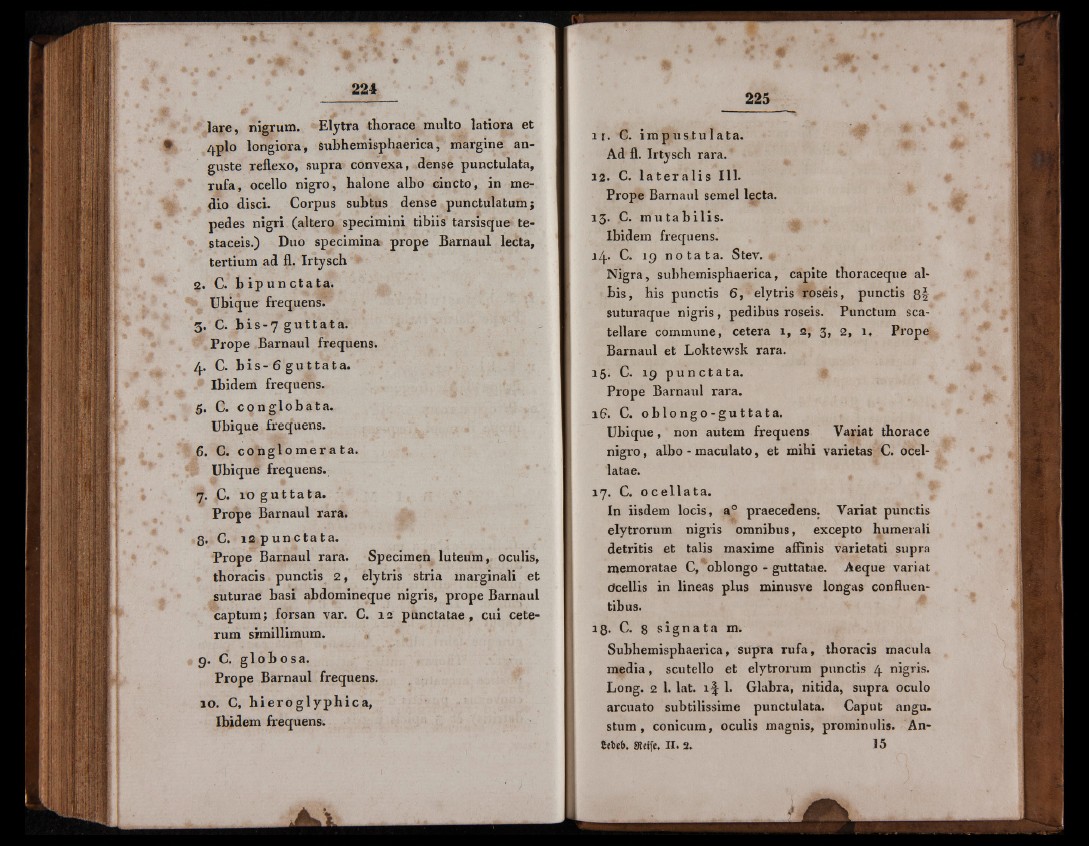 224
lare, nigrum. Elytra thorace multo latiora et
4plo longiora, subhemisphaerica, margine an-
guste reflexo, supra convexa, dense punctulata,
rufa, ocello nigro, halone albo cincto, in me-
dio disci. Corpus subtus dense punctulatum;
pedes nigri (altero specimini tibiis tarsisque te-
staceis.) Duo specimina prope Barnaul lecta,
tertium ad fl. Irtysch
2. C. bipunctata.
Ubique frequens.
3. C. bis-7 guttata.
Prope Barnaul frequens.
4. C. bis-6 guttata.
Ibidem frequens.
5. C. conglobata.
Ubique frequens.
6. C. conglomerata.
Ubique frequens.
7. C. 10 guttata.
Prope Barnaul rara.
8. C. 12 punctata.
Prope Barnaul rara. Specimen luteum, oculis,
thoracis punctis 2, elytris stria marginali et
suturae basi abdomineque nigris, prope Barnaul
captum; forsan var. C. 12 punctatae, cui cete-
rum simillimum.
9. C. globosa.
Prope Barnaul frequens.
10. C. hieroglyphica,
Ibidem frequens.
225
11. C. impustulata.
Ad fl. Irtysch rara.
12. C. lateralis Ill.
Prope Barnaul semel lecta.
13. C. mutabilis.
Ibidem frequens.
14. C. 19 notata. Stev.
Nigra, subhemisphaerica, capite thoraceque al-
bis, his punctis 6, elytris roseis, punctis 8½
suturaque nigris, pedibus roseis. Punctum scu-
tellare commune, cetera 1, 2, 3, 2, 1. Prope
Barnaul et Loktewsk rara.
15. C. 19 punctata.
Prope Barnaul rara.
16. C. oblongo-guttata.
Ubique, non autem frequens Variat thorace
nigro, albo-maculato, et mihi varietas C. ocel-
latae.
17. C. ocellata.
In iisdem locis, a° praecedens. Variat punctis
elytrorum nigris omnibus, excepto humerali
detritis et talis maxime affinis varietati supra
memoratae C, oblongo-guttatae. Aeque variat
ocellis in lineas plus minusve longas confluen-
tibus.
18. C. 8 signata m.
Subhemisphaerica, supra rufa, thoracis macula
media, scutello et elytrorum punctis 4 nigris.
Long. 2 l. lat. 1¾ l. Glabra, nitida, supra oculo
arcuato subtilissime punctulata. Caput angu-
stum, conicum, oculis magnis, prominulis. An-
Ledeb. Reise. II. 2. 15